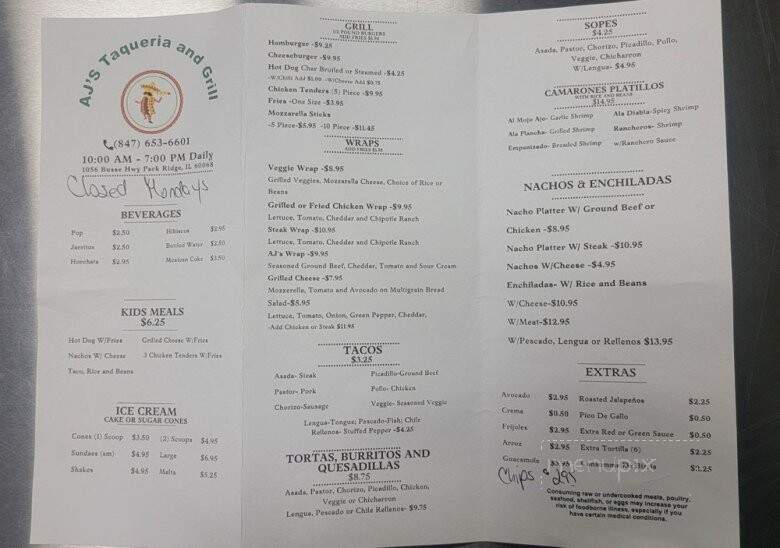 AJ'S Taqueria and Grill
(847) 653-6601
10:00 AM - 7:00 PM Daily
1056 Busse Hwy Park Ridge, IL 60068
Closed Mondays
BEVERAGES
Pop $2.50 Hibiscus $2.95
Jarritos $2.50 Bottled Water $2.50
Horchata $2.95 Mexican Coke $3.50
KIDS MEALS
$6.25
Hot Dog W/Fries Grilled Cheese W/Fries
Nachos W/ Cheese 3 Chicken Tenders W/Fries
Taco, Rice and Beans
ICE CREAM
CAKE OR SUGAR CONES
Cones (1) Scoop $3.50 (2) Scoops $4.95
Sundaes (sm) $4.95 Large $6.95
Shakes $4.95 Malts $5.25
GRILL
1/2 POUND BURGERS
ADD FRIES $1.95
Hamburger -$9.25
Cheeseburger -$9.95
Hot Dog Char Broiled or Steamed -$4.25
-W/Chili Add $1.00 -W/Cheese Add $0.75
Chicken Tenders (5) Piece -$9.95
Fries -One Size -$3.95
Mozzarella Sticks
-5 Piece-$5.95 -10 Piece -$11.45
WRAPS
ADD FRIES $1.95
Veggie Wrap -$8.95
Grilled Veggies, Mozzarella Cheese, Choice of Rice or
Beans
Grilled or Fried Chicken Wrap -$9.95
Lettuce, Tomato, Chedder and Chipotle Ranch
Steak Wrap -$10.95
Lettuce, Tomato, Chedder and Chipotle Ranch
AJ's Wrap -$9.95
Seasoned Ground Beef, Cheddar, Tomato and Sour Cream
Grilled Cheese -$7.95
Mozzerella, Tomato and Avocado on Multigrain Bread
Salad-$8.95
Lettuce, Tomato, Onion, Green Pepper, Cheddar,
-Add Chicken or Steak $11.95
TACOS
$3.25
Asada- Steak Picadillo-Ground Beef
Pastor- Pork Pollo- Chicken
Chorizo-Sausage Veggie- Seasoned Veggie
Lengua-Tongue; Pescado-Fish; Chile
Rellenos- Stuffed Pepper -$4.25
TORTAS, BURRITOS AND
QUESADILLAS
$8.75
Asada, Pastor, Chorizo, Picadillo, Chicken,
Veggie or Chicharron
Lengua, Pescado or Chile Rellenos- $9.75
SOPES
$4.25
Asada, Pastor, Chorizo, Picadillo, Pollo,
Veggie, Chicharron
W/Lengua- $4.95
CAMARONES PLATILLOS
WITH RICE AND BEANS
$14.95
Al Mojo Ajo- Garlic Shrimp Ala Diabla-Spicy Shrimp
Ala Plancha- Grilled Shrimp Rancheros- Shrimp
Empanizado- Breaded Shrimp w/Ranchero Sauce
NACHOS & ENCHILADAS
Nacho Platter W/ Ground Beef or
Chicken -$8.95
Nacho Platter W/ Steak -$10.95
Nachos W/Cheese -$4.95
Enchiladas- W/ Rice and Beans
W/Cheese-$10.95
W/Meat-$12.95
W/Pescado, Lengua or Rellenos $13.95
EXTRAS
Avocado $2.95 Roasted Jalapeños $2.25
Crema $0.50 Pico De Gallo $0.50
Frijoles $2.95 Extra Red or Green Sauce $0.50
Arroz $2.95 Extra Tortilla (6) $2.25
Guacamole $3.95 $2.25
Chips $2.95
menupix
Consuming raw or undercooked meats, poultry,
seafood, shellfish, or eggs may increase your
risk of foodborne illness, especially if you
have certain medical conditions.